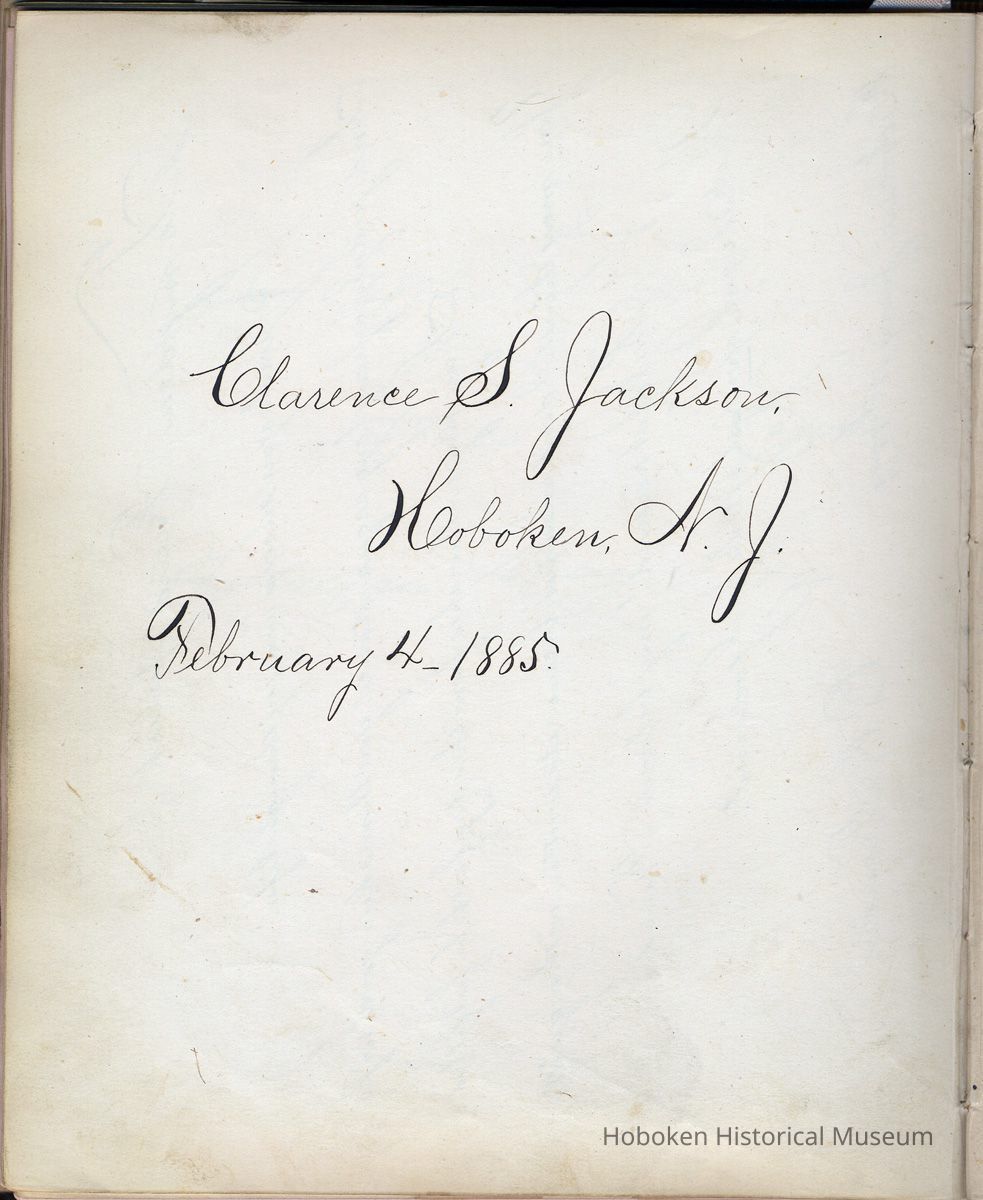 Clarence S. Jackson.
Hoboken, N. J.
February 4 - 1885.
Hoboken Historical Museum